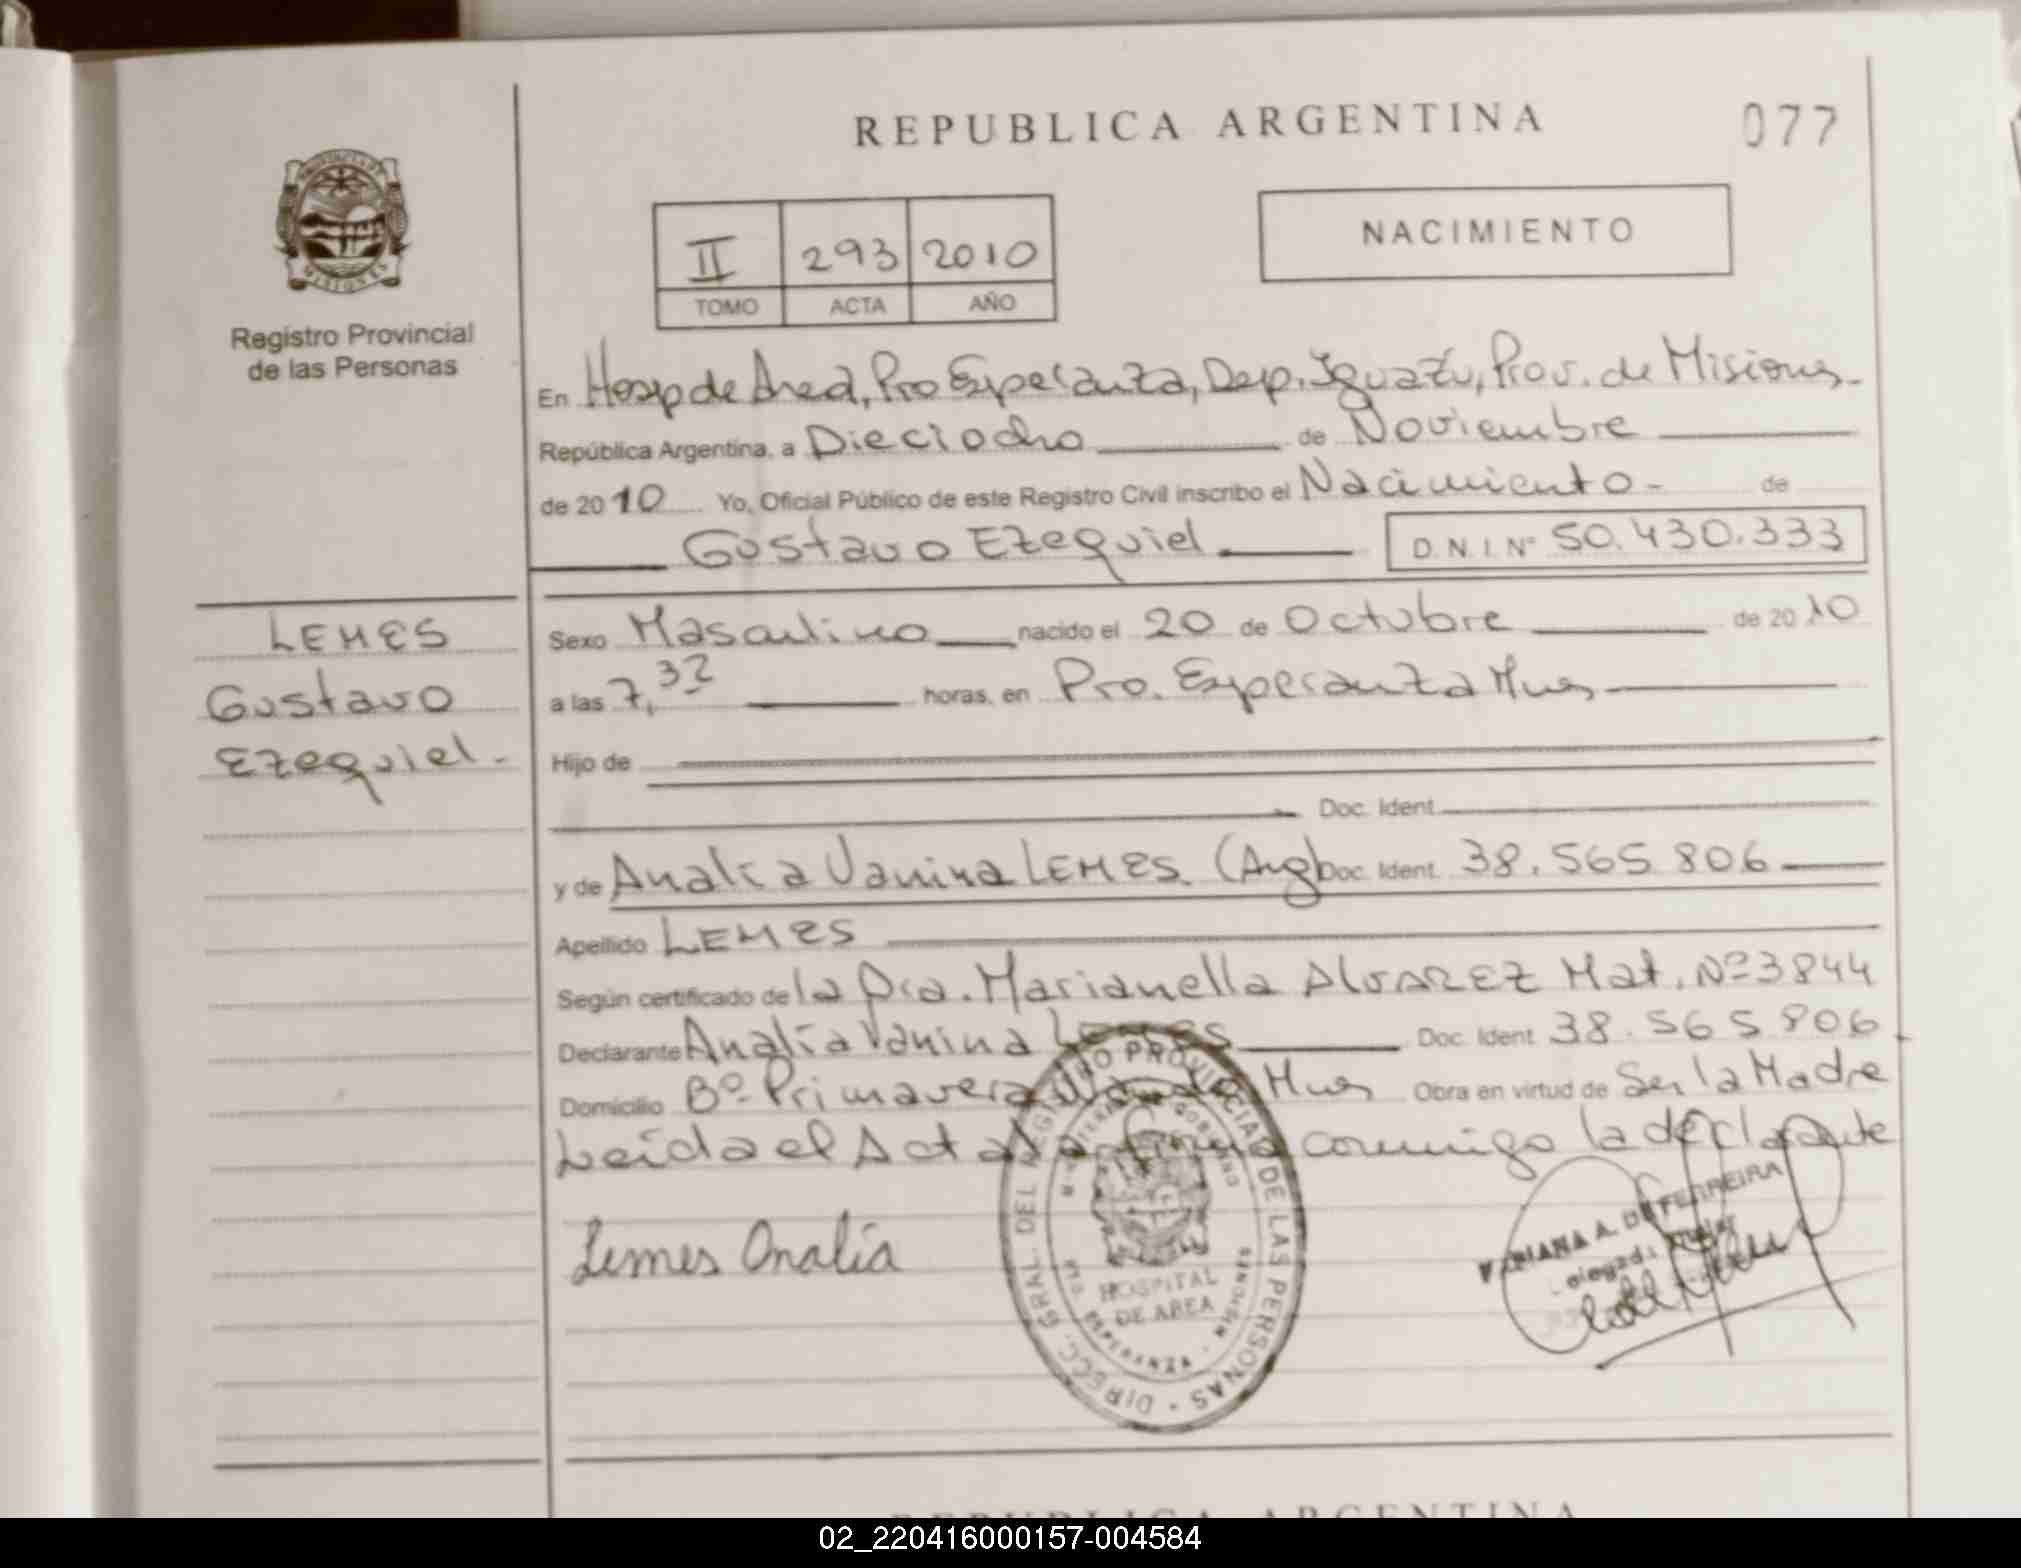 REPUBLICA ARGENTINA
077
MISIONES
Registro Provincial
de las Personas
II 293 2010
TOMO ACTA AÑO
NACIMIENTO
En Hosp de Area, Pto Esperanza, Dep. Iguazú, Prov. de Misiones
República Argentina, a Dieciocho de Noviembre
de 2010 Yo, Oficial Público de este Registro Civil inscribo el Nacimiento- de
Gustavo Ezequiel D.N.I. Nº 50.430.333
LEMES
Gustavo
Ezequiel.-
Sexo Masculino nacido el 20 de Octubre de 2010
a las 7,32 horas, en Pto. Esperanza Mnes
Hijo de
Doc. Ident.
y de Analía Vanina LEMES. (Arg) Doc. Ident. 38.565.806
Apellido LEMES
Según certificado de la Dra. Marianella ALVAREZ Mat. Nº 3844
Declarante Analía Vanina LEMES Doc. Ident. 38.565.806.
Domicilio Bº Primavera Mnes Obra en virtud de Ser la Madre
Leída el Acta la firma conmigo la declarante
Lemes Analía
DIRECC. GRAL. DEL REGISTRO PROVINCIAL DE LAS PERSONAS
HOSPITAL
DE AREA
ESPERANZA - MISIONES
A. DE FERREIRA
REPUBLICA ARGENTINA
02_220416000157-004584